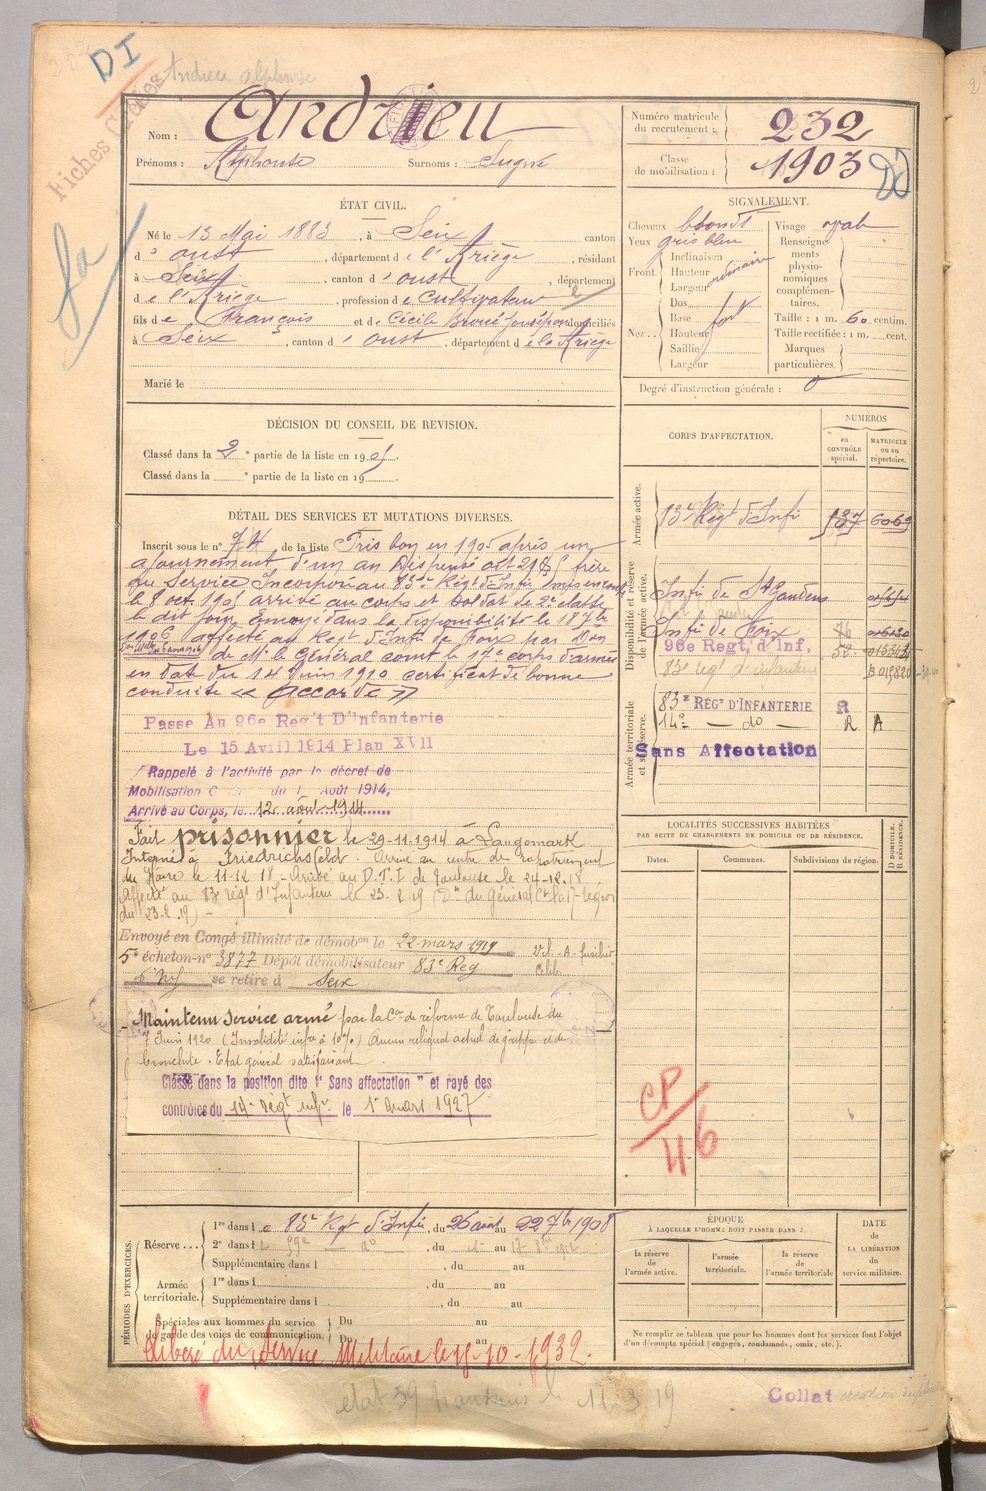 DI
Andrieu Alphonse
Fiches
Nom : Andrieu
Prénoms : Alphonse Surnoms :
Numéro matricule du recrutement : 232
Classe de mobilisation : 1903
ÉTAT CIVIL.
Né le 13 Mai 1883, à Seix, canton
d' oust, département de l'Ariège, résidant
à Seix, canton d' oust, département
de l'Ariège, profession de Cultivateur
fils de François et de Cécile domiciliés
à Seix, canton d' oust, département de la Ariège
Marié le
SIGNALEMENT.
Cheveux blonds
Yeux gris bleu
Front. Inclinaison
Hauteur ordinaire
Largeur
Nez... Dos
Base fort
Hauteur
Saillie
Largeur
Visage oval
Renseignements physionomiques complémentaires.
Taille : 1 m. 60 centim.
Taille rectifiée : 1 m. cent.
Marques particulières.
Degré d'instruction générale : 0
DÉCISION DU CONSEIL DE REVISION.
Classé dans la 2e partie de la liste en 1905.
Classé dans la e partie de la liste en 19 .
CORPS D'AFFECTATION.
NUMÉROS
au CONTRÔLE spécial.
MATRICULE ou au répertoire.
Armée active.
Régt d'Infie 6069
Disponibilité et réserve de l'armée active.
Infie de St Gaudens
Infie de Foix
96e Regt, d'Inf, 52
83e régt d'infanterie
Armée territoriale et sa réserve.
83e REGt D'INFANTERIE R
14e — do — R A
Sans Affectation
DÉTAIL DES SERVICES ET MUTATIONS DIVERSES.
Inscrit sous le n° 74 de la liste Pris bon en 1905 après un
ajournement d'un an Dispensé art 21 frère
au Service Incorporé au Régt d'Infie
le 8 oct. 1905 arrivé au corps et soldat de 2e classe
le dit jour envoyé dans la disponibilité le 18 7bre
1906 affecté au Régt d'Infie de Foix par Don
de Mr le Général comt le 17e corps d'armée
en date du 14 Juin 1910 certificat de bonne
conduite « accordé »
Passe Au 96e Reg't D'Infanterie
Le 15 Avril 1914 Plan XVII
Rappelé à l'activité par le décret de
Mobilisation du 1 Août 1914,
Arrivé au Corps, le 12 août 1914
Fait prisonnier le 29-11-1914 à Langemark
Interné à Friedrichsfeld. Arrivé au centre de rapatriement
du Havre le 11-12-18 - Arrivé au D.T.I de Toulouse le 24-12-18
Affecté au 83e régt d'Infanterie le 23-2-19 (Dn du Général Ct la 17e région
du 23-2-19) -
Envoyé en Congé illimité de démobon le 22 mars 1919
5e échelon-n° 3877 Dépôt démobilisateur 83e Reg
se retire à Seix
Maintenu service armé par la Con de réforme de Toulouse du
7 Juin 1920 (Invalidité infre à 10%) Aucun reliquat actuel de grippe et de
bronchite. Etat général satisfaisant
Classé dans la position dite " Sans affectation " et rayé des
contrôles du 14e régt infie le 1er mars 1927
LOCALITÉS SUCCESSIVES HABITÉES
PAR SUITE DE CHANGEMENTS DE DOMICILE OU DE RÉSIDENCE.
Dates. Communes. Subdivisions de région.
D DOMICILE. R RÉSIDENCE.
CP
46
PÉRIODES D'EXERCICES.
Réserve... 1re dans le 83e Régt d'Infie, du 26 août au 22 7bre 1908
2e dans l , du au
Supplémentaire dans l , du au
Armée territoriale. 1re dans l , du au
Supplémentaire dans l , du au
Spéciales aux hommes du service de garde des voies de communication. Du au
Du au
Libéré du Service Militaire le 15-10-1932.
ÉPOQUE
À LAQUELLE L'HOMME DOIT PASSER DANS :
la réserve de l'armée active.
l'armée territoriale.
la réserve de l'armée territoriale
DATE DE LA LIBÉRATION du service militaire.
Ne remplir ce tableau que pour les hommes dont les services font l'objet
d'un décompte spécial (engagés, condamnés, omis, etc.).
état 39 le 11-3-19
Collat